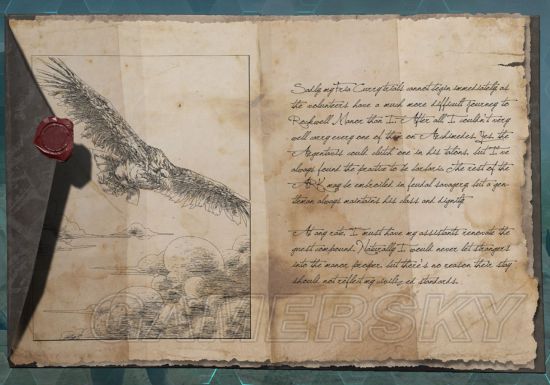 Sadly my Iris Curry trials cannot begin immediately, as
the volunteers have a much more difficult journey to
Rockwell Manor than I. After all I wouldn't very
well carry every one of them on Archimedes. Yes, the
Argentavis could clutch one in his talons, but I've
always found the practice to be barbaric. The rest of the
ARK may be embroiled in feudal savagery, but a gen-
tleman always maintains his class and dignity.
At any rate, I must have my assistants renovate the
guest compound. Naturally I would never let strangers
into the manor proper, but there's no reason their stay
should not reflect my civilized standards.
GAMERSKY